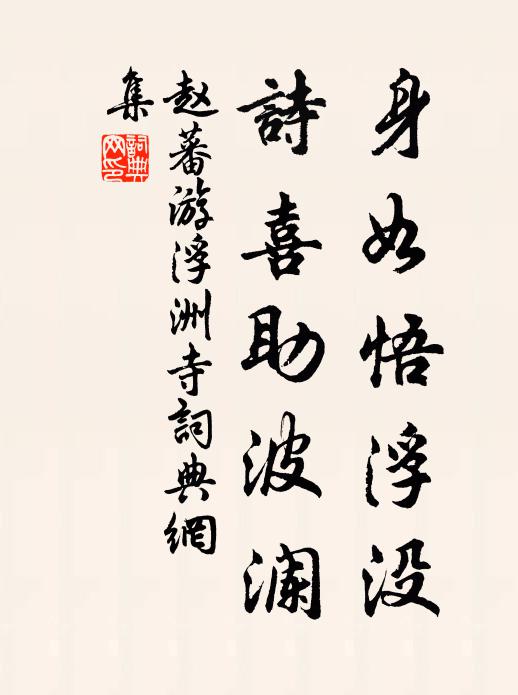 身如悟浮没
詩喜助波澜
赵蕃游浮洲寺詞典網
集
詞典網印